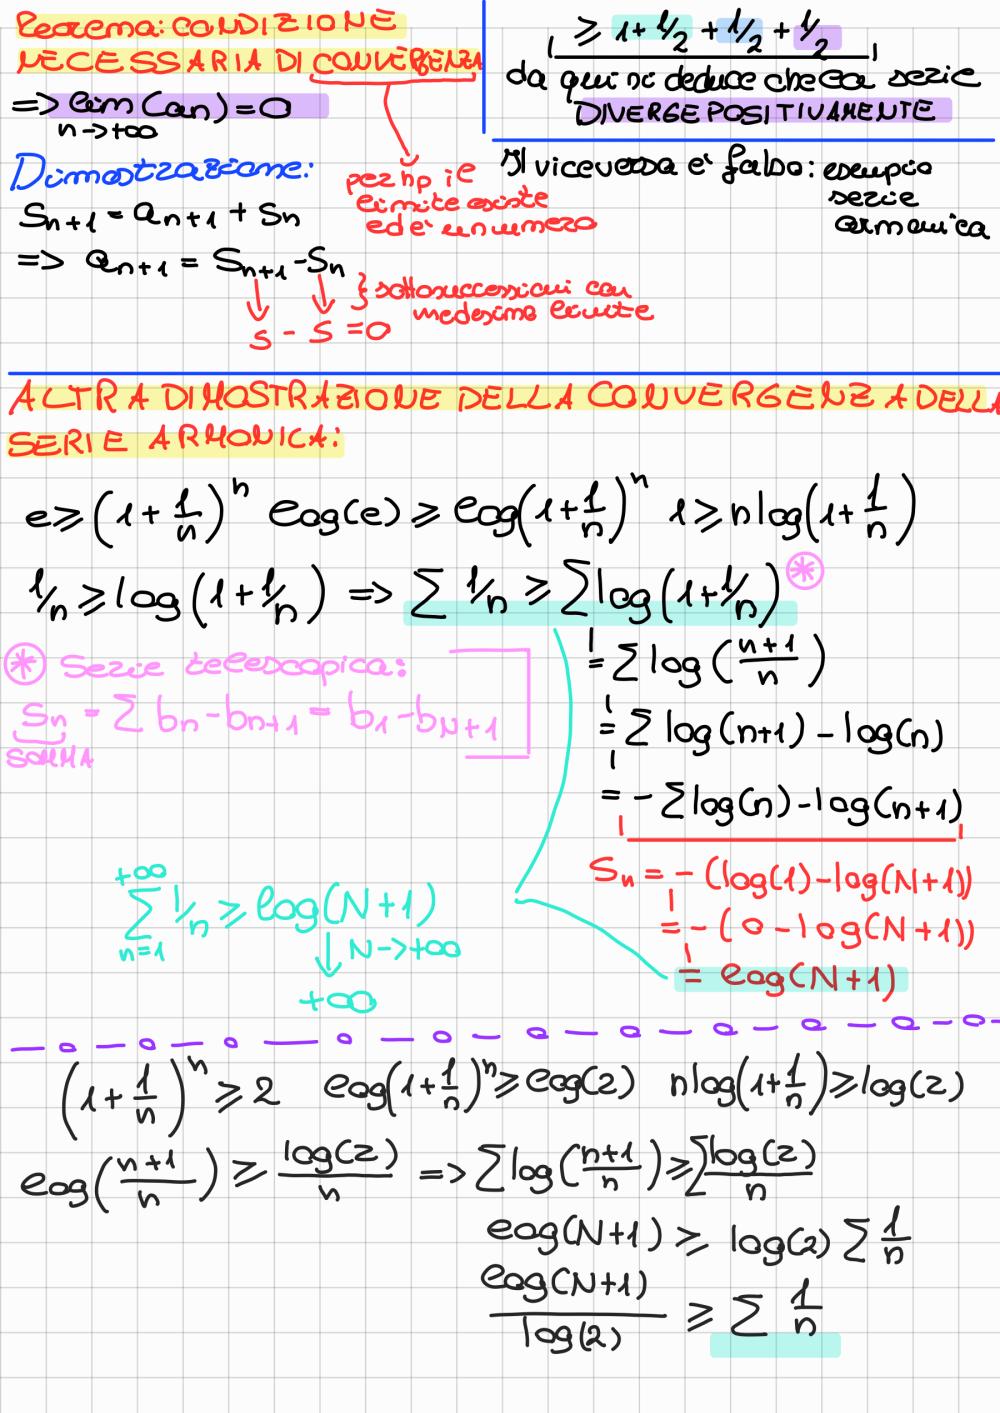 Teorema: CONDIZIONE
NECESSARIA DI CONVERGENZA
=> lim (an) = 0
n->+∞
per hp il
limite esiste
ed è un numero
Dimostrazione:
Sn+1 = an+1 + Sn
=> an+1 = Sn+1 - Sn
} sottosuccessioni con
medesimo limite
S - S = 0
≥ 1 + 1/2 + 1/2 + 1/2
da qui si deduce che la serie
DIVERGE POSITIVAMENTE
Il viceversa è falso: esempio
serie
armonica
ALTRA DIMOSTRAZIONE DELLA CONVERGENZA DELLA
SERIE ARMONICA:
e ≥ (1 + 1/n)^n log(e) ≥ log(1 + 1/n)^n 1 ≥ nlog(1 + 1/n)
1/n ≥ log(1 + 1/n) => ∑ 1/n ≥ ∑ log(1 + 1/n) *
= ∑ log((n+1)/n)
= ∑ log(n+1) - log(n)
= - ∑ log(n) - log(n+1)
* Serie telescopica:
Sn = ∑ bn - bn+1 = b1 - bN+1
SOMMA
Sn = - (log(1) - log(N+1))
= - (0 - log(N+1))
= log(N+1)
+∞
∑ 1/n ≥ log(N+1)
n=1
↓ N->+∞
+∞
(1 + 1/n)^n ≥ 2 log(1 + 1/n)^n ≥ log(2) nlog(1 + 1/n) ≥ log(2)
log((n+1)/n) ≥ log(2)/n => ∑ log((n+1)/n) ≥ ∑ log(2)/n
log(N+1) ≥ log(2) ∑ 1/n
log(N+1)/log(2) ≥ ∑ 1/n